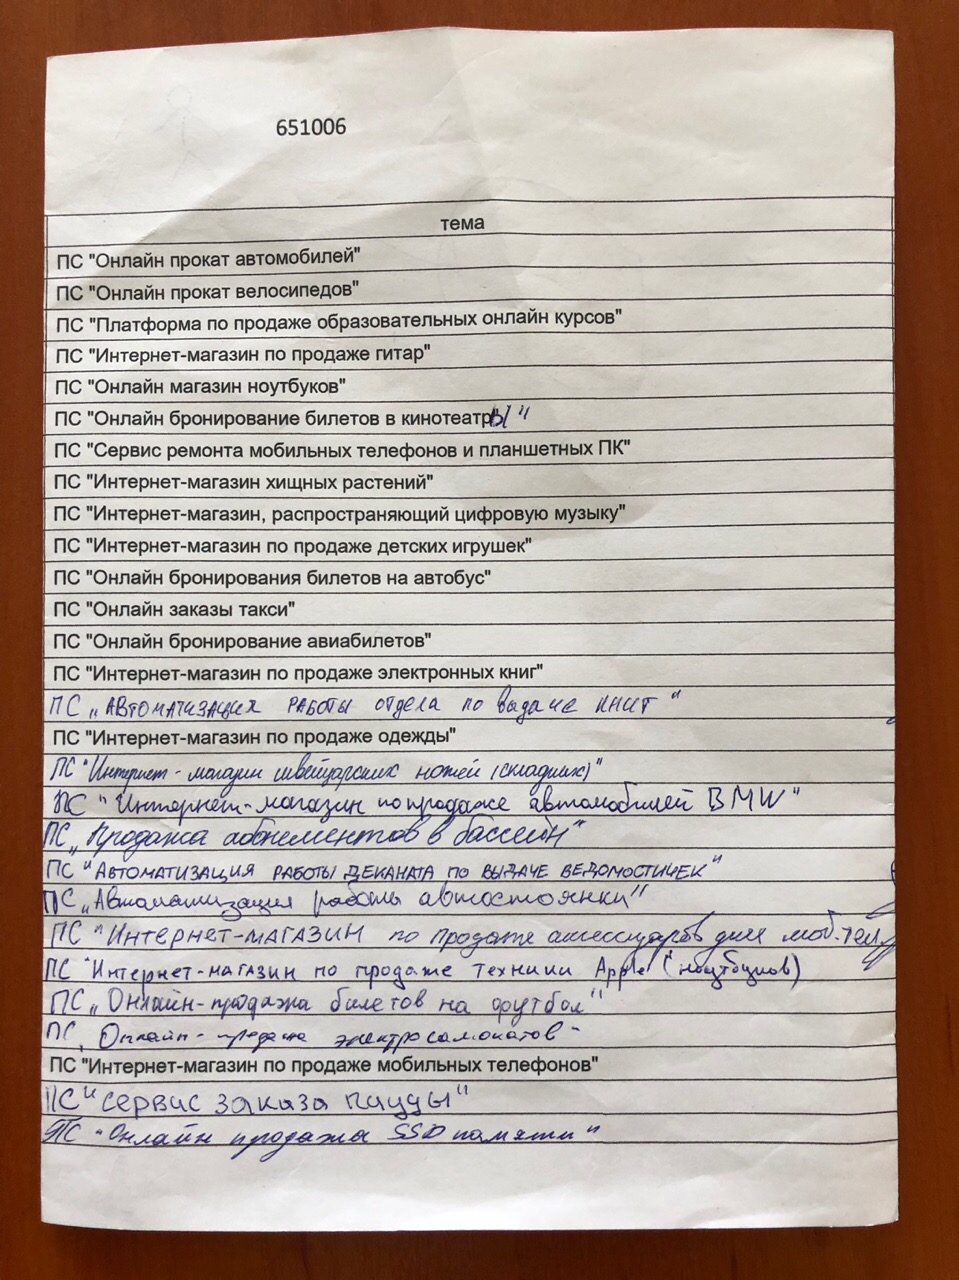 651006
тема
ПС "Онлайн прокат автомобилей"
ПС "Онлайн прокат велосипедов"
ПС "Платформа по продаже образовательных онлайн курсов"
ПС "Интернет-магазин по продаже гитар"
ПС "Онлайн магазин ноутбуков"
ПС "Онлайн бронирование билетов в кинотеатры"
ПС "Сервис ремонта мобильных телефонов и планшетных ПК"
ПС "Интернет-магазин хищных растений"
ПС "Интернет-магазин, распространяющий цифровую музыку"
ПС "Интернет-магазин по продаже детских игрушек"
ПС "Онлайн бронирования билетов на автобус"
ПС "Онлайн заказы такси"
ПС "Онлайн бронирование авиабилетов"
ПС "Интернет-магазин по продаже электронных книг"
ПС „Автоматизация работы отдела по выдаче книг"
ПС "Интернет-магазин по продаже одежды"
ПС "Интернет-магазин швейцарских ножей (складных)"
ПС "Интернет-магазин по продаже автомобилей BMW"
ПС „Продажа абонементов в бассейн"
ПС "Автоматизация работы деканата по выдаче ведомостичек"
ПС „Автоматизация работы автостоянки"
ПС "Интернет-магазин по продаже аксессуаров для моб. тел."
ПС "Интернет-магазин по продаже техники Apple (ноутбуков)
ПС „Онлайн-продажа билетов на футбол"
ПС „Онлайн-продажа электросамокатов"
ПС "Интернет-магазин по продаже мобильных телефонов"
ПС "Сервис заказа пиццы"
ПС "Онлайн продажа SSD памяти"